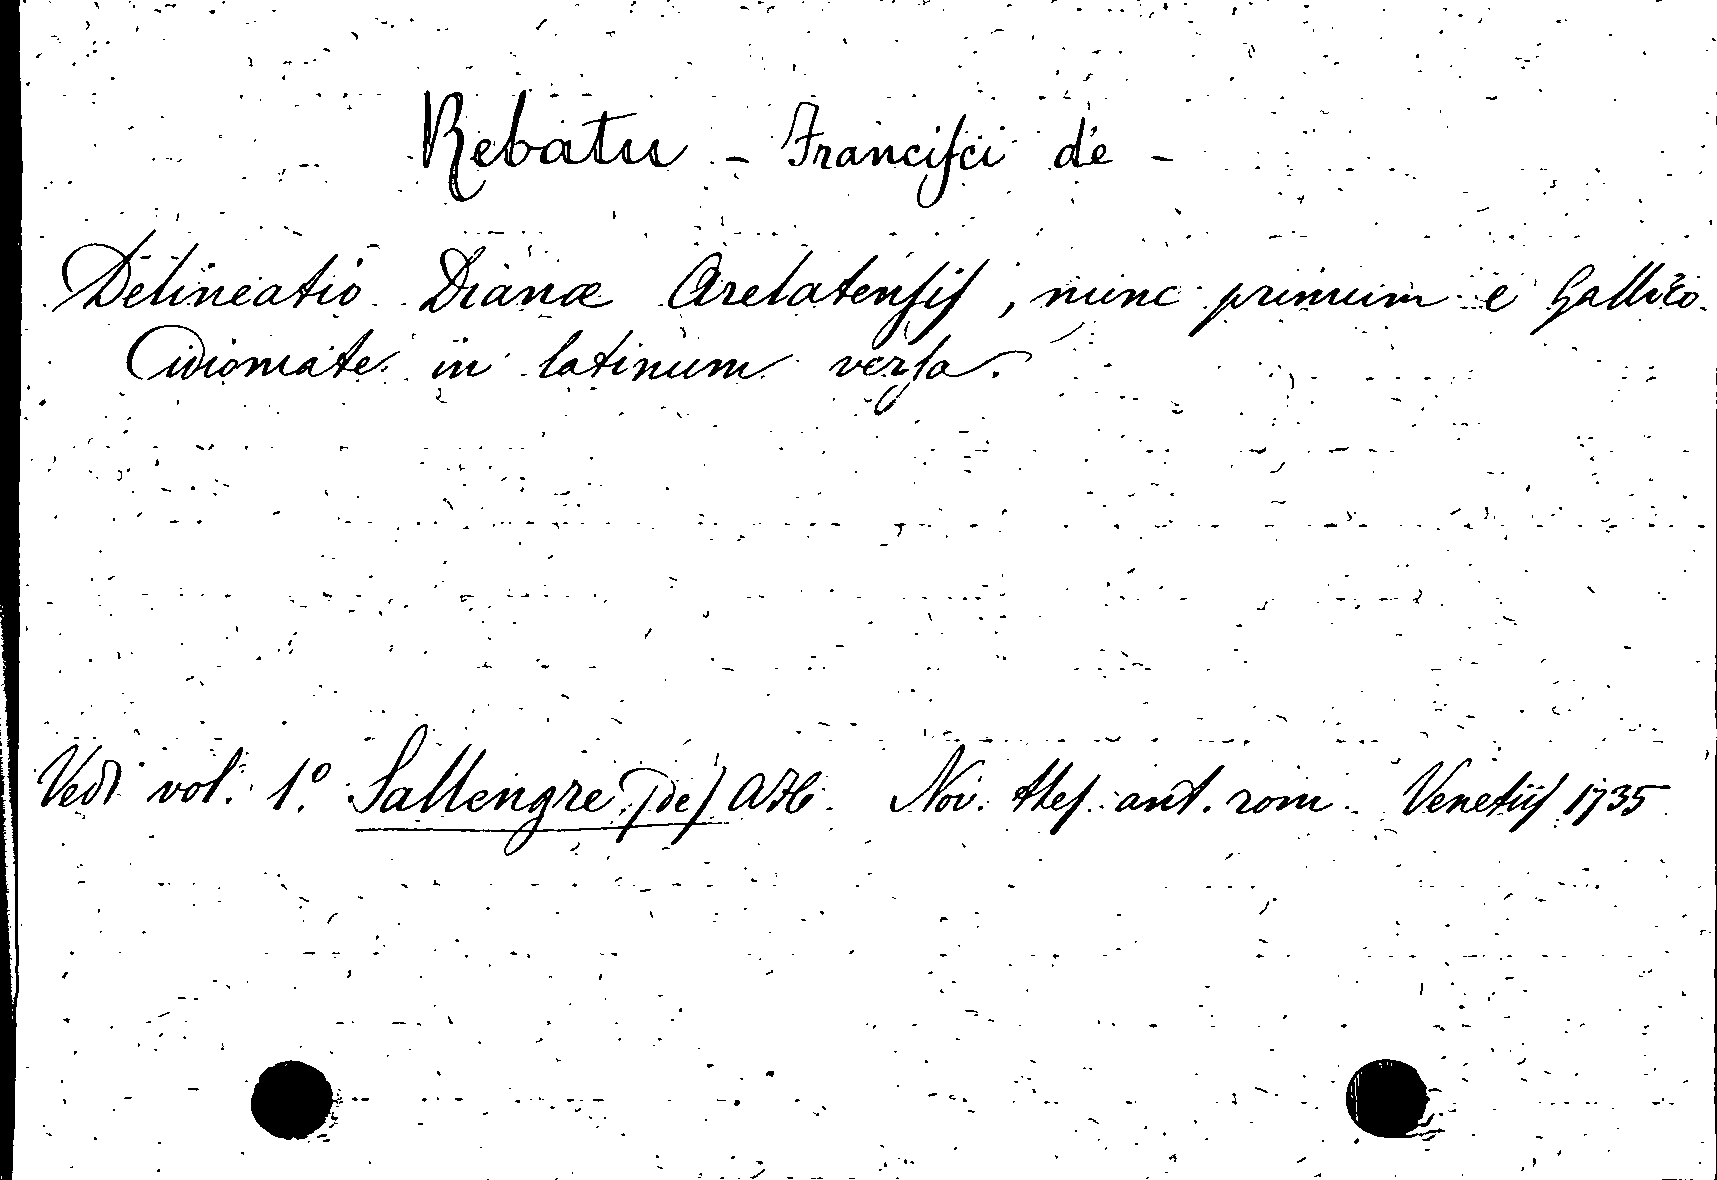 Rebatu - Francisci de -
Delineatio Dianæ Arelatensis, nunc primum e Gallico
idiomate in latinum versa.
Vedi vol. 1.º Sallengre (de) A. H. Nov. thes. ant. rom. Venetiis 1735